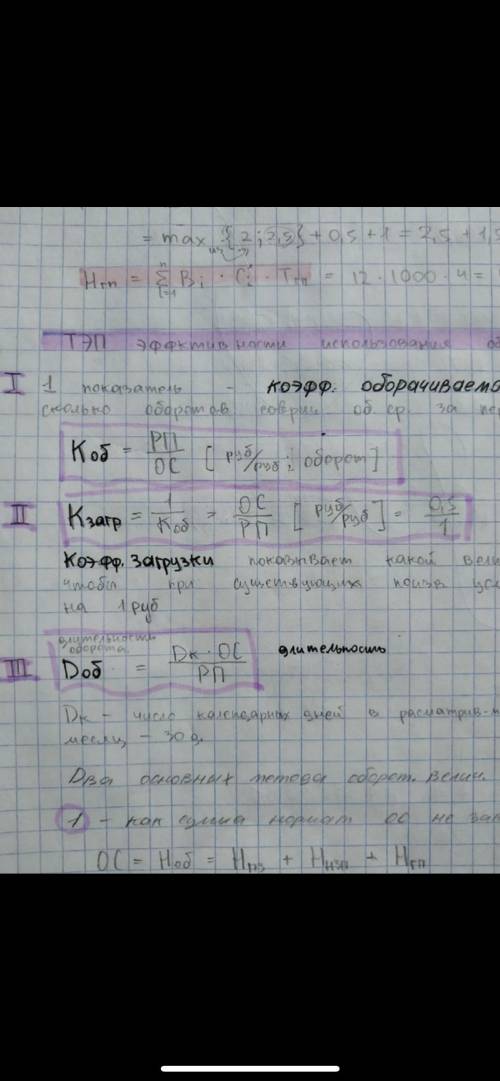 = max {2 ; 2,5} + 0,5 + 1 = 2,5 + 1,5
Нгп = Σ Bi · Ci' · Тгп = 12 · 1000 · 4 =
n
i=1
ТЭП эффективности использования об
I 1 показатель - коэфф. оборачиваемо
сколько оборотов соверш об. ср. за пер
Kоб = РП/ОС [руб/руб ; оборот]
II Kзагр = 1/Kоб = ОС/РП [руб/руб] = 0,5/1
Коэфф. загрузки показывает какой вели
чтобы при существующих
на 1 руб
длительность
оборота
III Dоб = Dк · ОС / РП длительность
Dк - число календарных дней в
месяц - 30 д.
Два основных метода оборот. велич.
1 - как сумма нормат ОС
ОС = Ноб = Нпз + Ннзп + Нгп